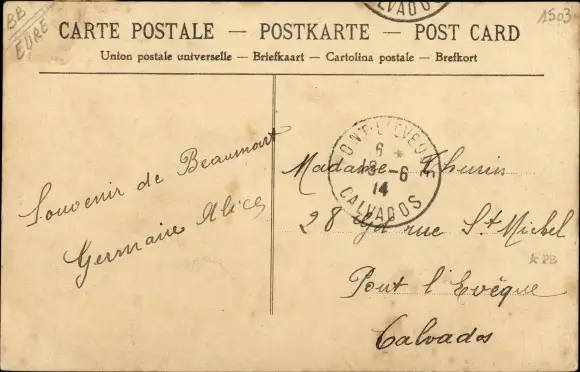 BB
EURE
LVADO
1503
CARTE POSTALE — POSTKARTE — POST CARD
Union postale universelle — Briefkaart — Cartolina postale — Brefkort
Souvenir de Beaumont
Germaine Alice
PONT-L'EVEQUE
6 *
18 - 6
14
CALVADOS
Madame Thurin
28 Gd rue St Michel
* PB
Pont l'Evêque
Calvados